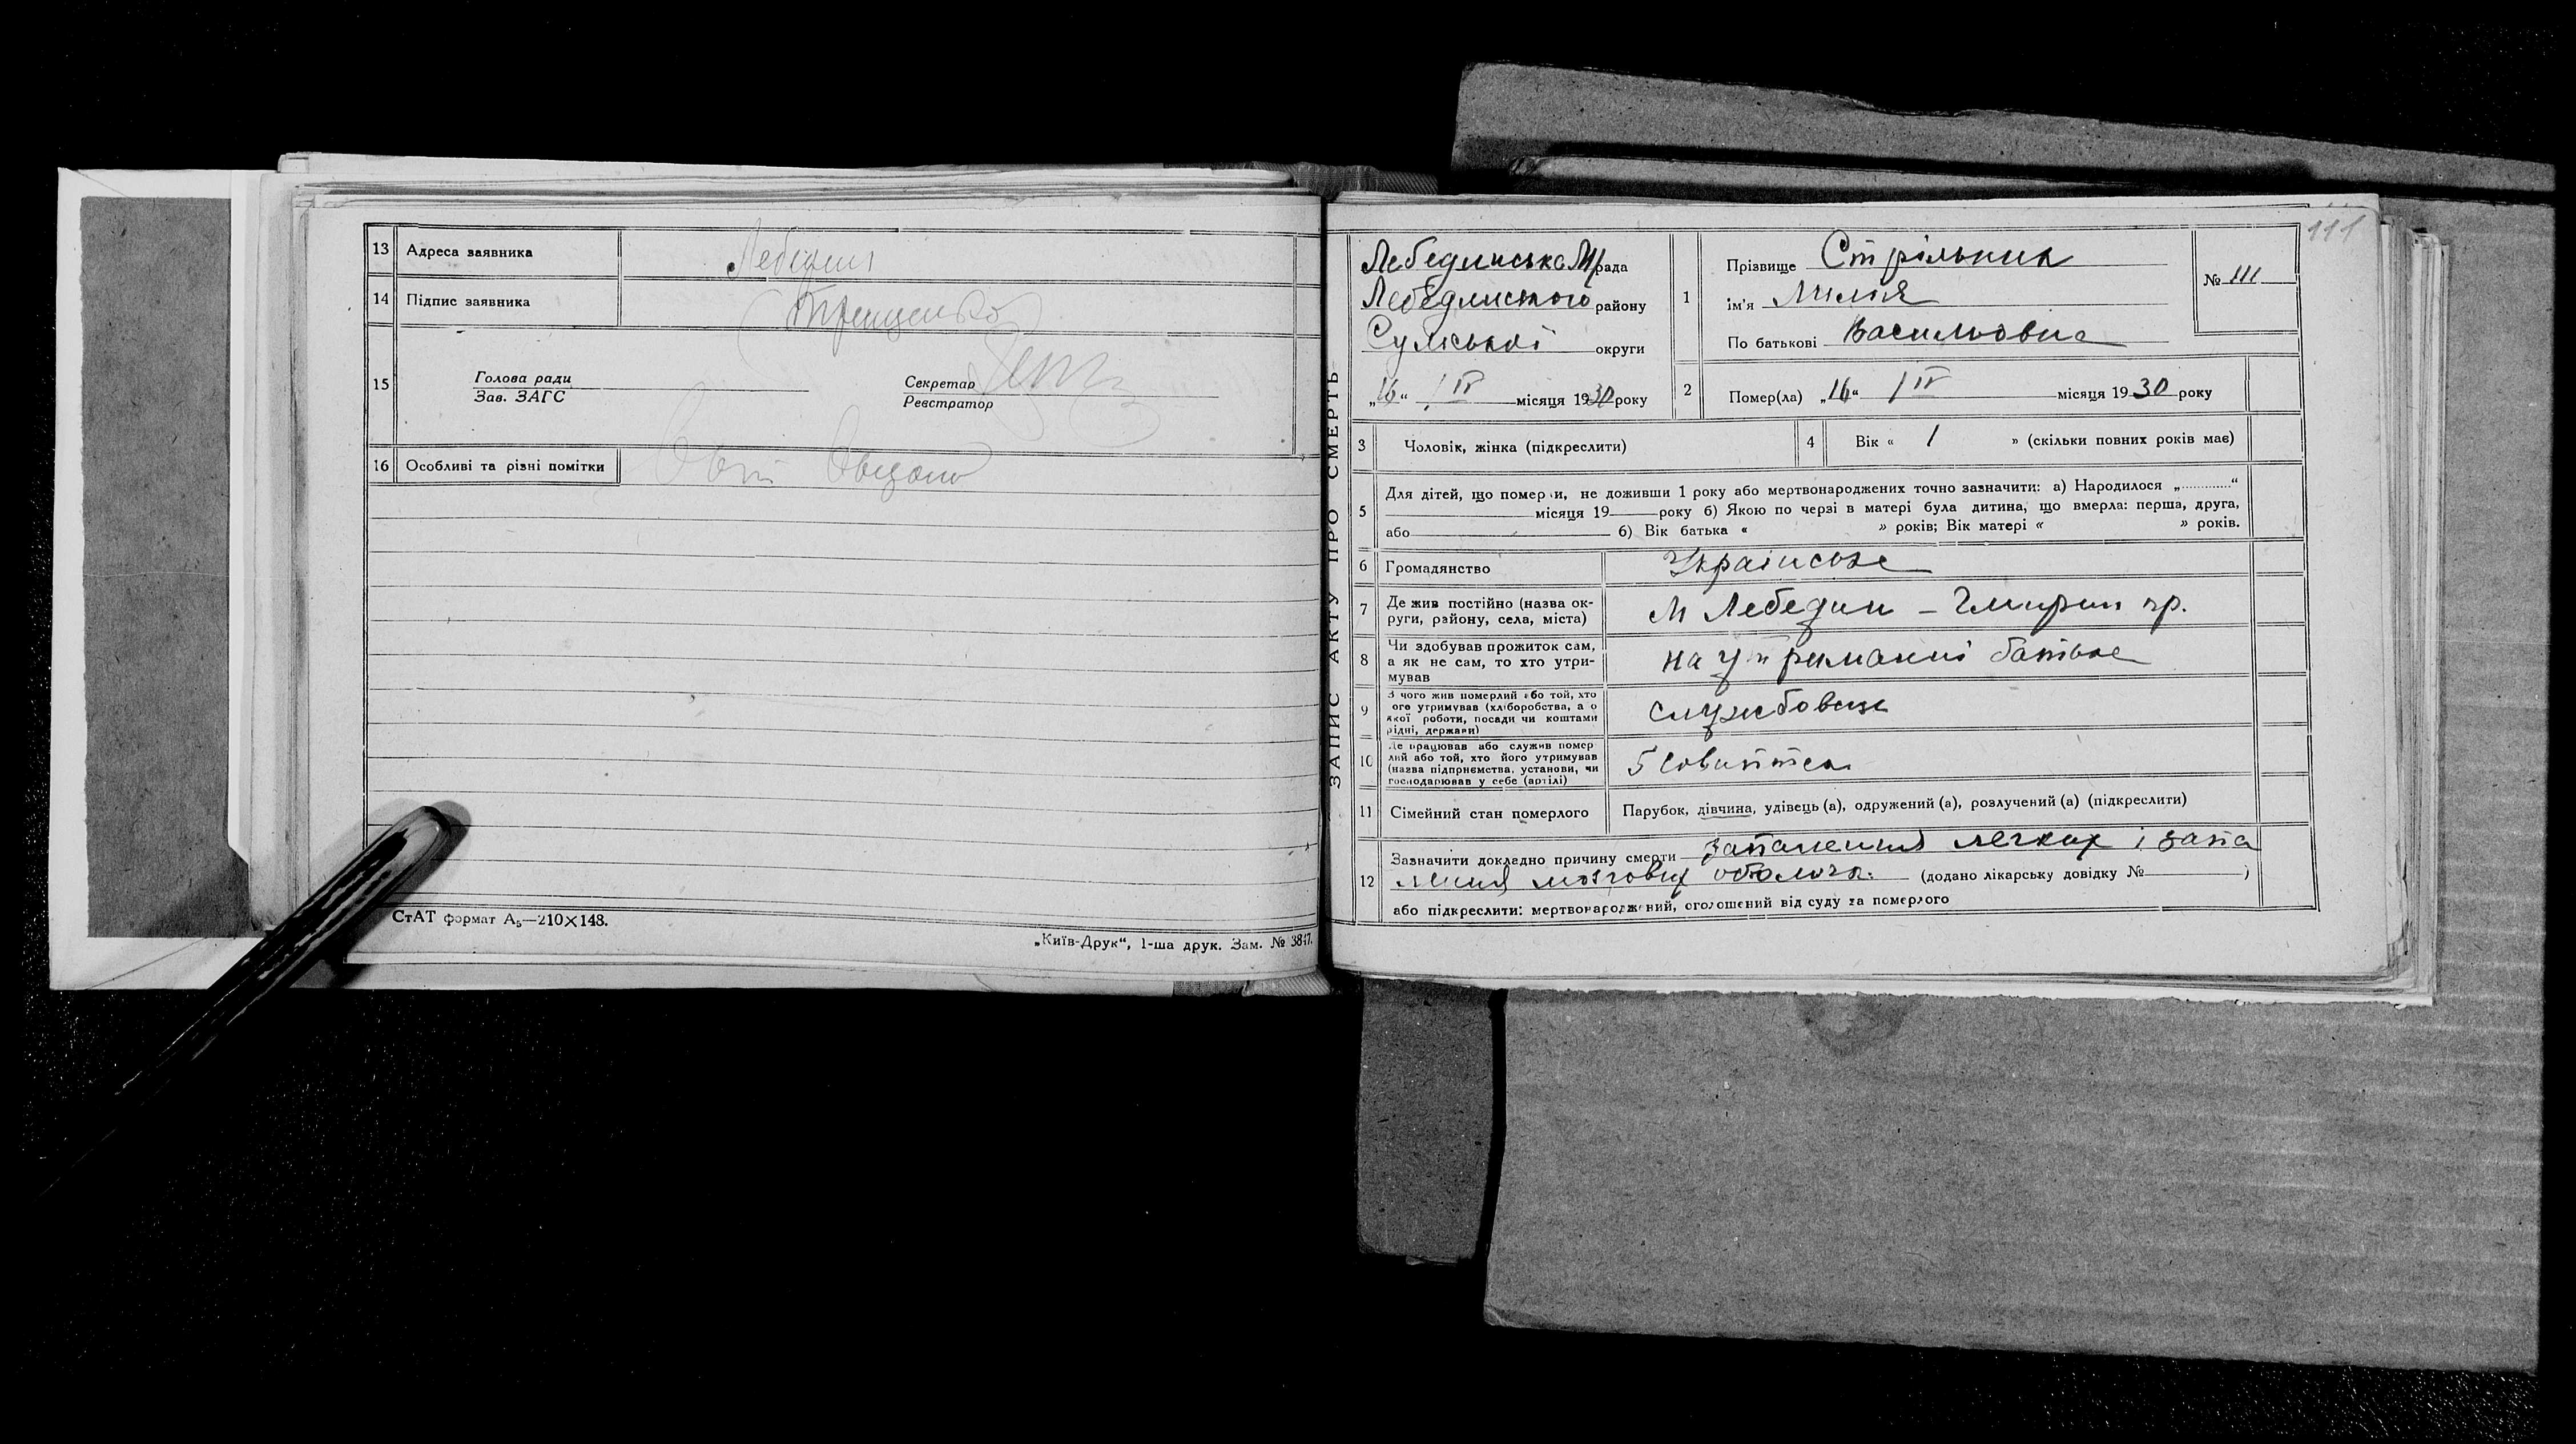 13 Адреса заявника Лебедин
14 Підпис заявника
15 Голова ради
Зав. ЗАГС
Секретар
Реєстратор
16 Особливі та різні помітки
СтАТ формат А₅—210×148.
„Київ-Друк“, 1-ша друк. Зам. № 3847.
ЗАПИС АКТУ ПРО СМЕРТЬ
111
Лебединська М рада
Лебединського району
Сумської округи
„16“ / IV місяця 1930 року
1 Прізвище Стрільник
ім'я Лилія
По батькові Васильовна
№ 111
2 Помер(ла) „16“ / IV місяця 1930 року
3 Чоловік, жінка (підкреслити)
4 Вік « 1 » (скільки повних років має)
5 Для дітей, що померли, не доживши 1 року або мертвонароджених точно зазначити: а) Народилося „............“
місяця 19 року б) Якою по черзі в матері була дитина, що вмерла: перша, друга,
або б) Вік батька « » років; Вік матері « » років.
6 Громадянство Українське
7 Де жив постійно (назва ок-
руги, району, села, міста) М Лебедин –
8 Чи здобував прожиток сам,
а як не сам, то хто утри-
мував на утриманні батька
9 З чого жив померлий або той, хто
ого утримував (хліборобства, а о
якої роботи, посади чи коштами
рідні, держави) службовец
10 Де працював або служив помер
лий або той, хто його утримував
(назва підприємства, установи, чи
господарював у себе (артілі)
11 Сімейний стан померлого Парубок, дівчина, удівець (а), одружений (а), розлучений (а) (підкреслити)
12 Зазначити докладно причину смерти запалення легких і запа
лення мозгових оболочк. (додано лікарську довідку № )
або підкреслити: мертвонароджений, оголошений від суду за померлого